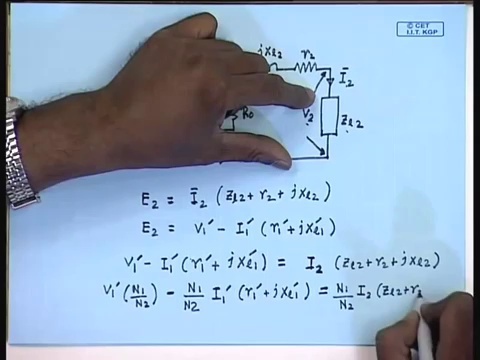 © CET
I.I.T. KGP
jxl2 r2
Ī2
R0
V2
Zl2
E2 = Ī2 (Zl2 + r2 + jxl2)
E2 = V1' - I1' (r1' + jxl1')
V1' - I1' (r1' + jxl1') = I2 (Zl2 + r2 + jxl2)
V1' (N1/N2) - N1/N2 I1' (r1' + jxl1') = N1/N2 I2 (Zl2 + r2